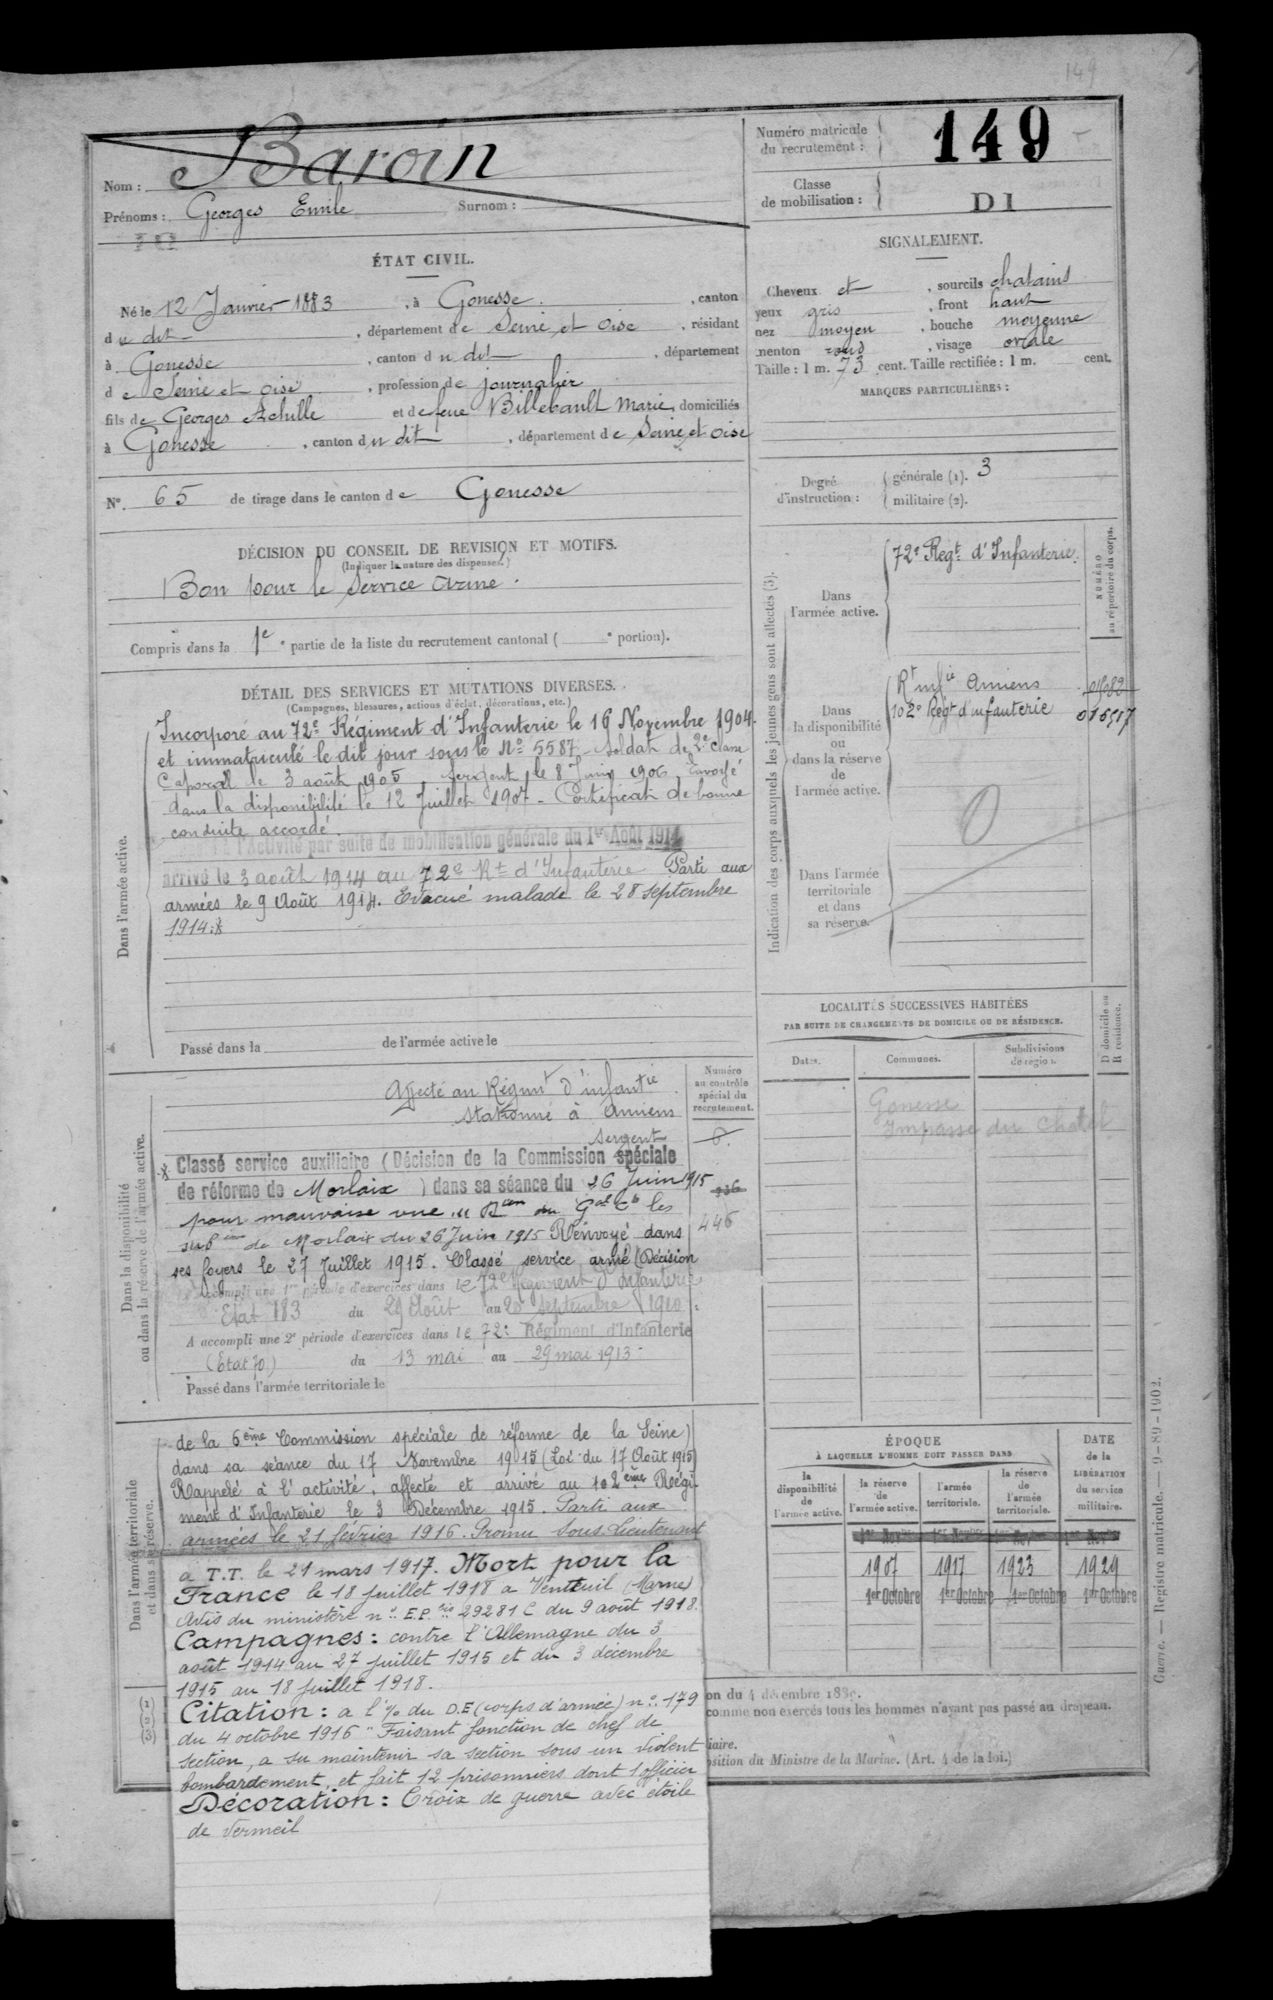 149
Nom : Baroin
Prénoms : Georges Emile Surnom :
Numéro matricule du recrutement : 149
Classe de mobilisation : DI
ÉTAT CIVIL.
Né le 12 Janvier 1883, à Gonesse, canton
du dit, département de Seine et Oise, résidant
à Gonesse, canton du dit, département
de Seine et Oise, profession de journalier
fils de Georges Achille et de feue Billebault Marie, domiciliés
à Gonesse, canton du dit, département de Seine et Oise
N° 65 de tirage dans le canton de Gonesse
DÉCISION DU CONSEIL DE REVISION ET MOTIFS.
(Indiquer la nature des dispenses.)
Bon pour le Service armé.
Compris dans la 1e partie de la liste du recrutement cantonal ( e portion).
SIGNALEMENT.
Cheveux et, sourcils chatains
yeux gris, front haut
nez moyen, bouche moyenne
menton rond, visage ovale
Taille : 1 m. 73 cent. Taille rectifiée : 1 m. cent.
MARQUES PARTICULIÈRES :
Degré d'instruction : générale (1). 3
militaire (2).
DÉTAIL DES SERVICES ET MUTATIONS DIVERSES.
(Campagnes, blessures, actions d'éclat, décorations, etc.)
Dans l'armée active.
Incorporé au 72e Régiment d'Infanterie le 16 Novembre 1904.
et immatriculé le dit jour sous le No 5587 - soldat de 2e classe
Caporal le 3 août 1905. Sergent le 8 Juin 1906. Envoyé
dans la disponibilité le 12 Juillet 1907 - Certificat de bonne
conduite accordé.
l'Activité par suite de mobilisation générale du 1er Août 1914
arrivé le 3 août 1914 au 72e Rt d'Infanterie Parti aux
armées le 9 Août 1914. Evacué malade le 28 septembre
1914.
Passé dans la de l'armée active le
Indication des corps auxquels les jeunes gens sont affectés (3).
NUMÉRO au répertoire du corps.
Dans l'armée active.
72e Régt d'Infanterie.
Dans la disponibilité ou dans la réserve de l'armée active.
Rt infie Amiens
102e Régt d'infanterie 015517
Dans l'armée territoriale et dans sa réserve.
LOCALITÉS SUCCESSIVES HABITÉES
PAR SUITE DE CHANGEMENTS DE DOMICILE OU DE RÉSIDENCE.
Dates. Communes. Subdivisions de région. D domicile ou R résidence.
Gonesse
Impasse du Chatel
Dans la disponibilité ou dans la réserve de l'armée active.
Numéro au contrôle spécial du recrutement.
Affecté au Régimt d'infantie
stationné à Amiens
Sergent
Classé service auxiliaire (Décision de la Commission spéciale
de réforme de Morlaix) dans sa séance du 26 Juin 1915
pour mauvaise vue
de Morlaix du 26 Juin 1915 Renvoyé dans 446
ses foyers le 27 Juillet 1915. Classé service armé (Décision
accompli une 1re période d'exercices dans le 72e Régiment d'Infanterie
Etat 183 du 29 Août au 20 septembre 1910
A accompli une 2e période d'exercices dans le 72e Régiment d'Infanterie
(Etat 70) du 13 mai au 29 mai 1913
Passé dans l'armée territoriale le
Dans l'armée territoriale et dans sa réserve.
de la 6ème Commission spéciale de réforme de la Seine)
dans sa séance du 17 Novembre 1915 (Loi du 17 Août 1915)
Rappelé à l'activité, affecté et arrivé au 102ème Régi
ment d'Infanterie le 3 Décembre 1915. Parti aux
armées le 21 février 1916. Promu Sous Lieutenant
à T.T. le 21 mars 1917. Mort pour la
France le 18 juillet 1918 a Venteuil (Marne)
Avis du ministère n° E.P. 29281 C du 9 août 1918.
Campagnes : contre l'Allemagne du 3
août 1914 au 27 juillet 1915 et du 3 décembre
1915 au 18 juillet 1918.
Citation : a l'% du D.E (corps d'armée) n° 179
du 4 octobre 1916 "Faisant fonction de chef de
section, a su maintenir sa section sous un violent
bombardement, et fait 12 prisonniers dont 1 officier
Décoration : Croix de guerre avec étoile
de vermeil
ÉPOQUE
À LAQUELLE L'HOMME DOIT PASSER DANS
la disponibilité de l'armée active. la réserve de l'armée active. l'armée territoriale. la réserve de l'armée territoriale.
DATE de la LIBÉRATION du service militaire.
1907 1917 1923 1929
1er Octobre 1er Octobre 1er Octobre 1er Octobre
(1)
(2)
(3)
on du 4 décembre 1889.
comme non exercés tous les hommes n'ayant pas passé au drapeau.
iaire.
osition du Ministre de la Marine. (Art. 4 de la loi.)
Guerre. — Registre matricule. — 9-89-1902.